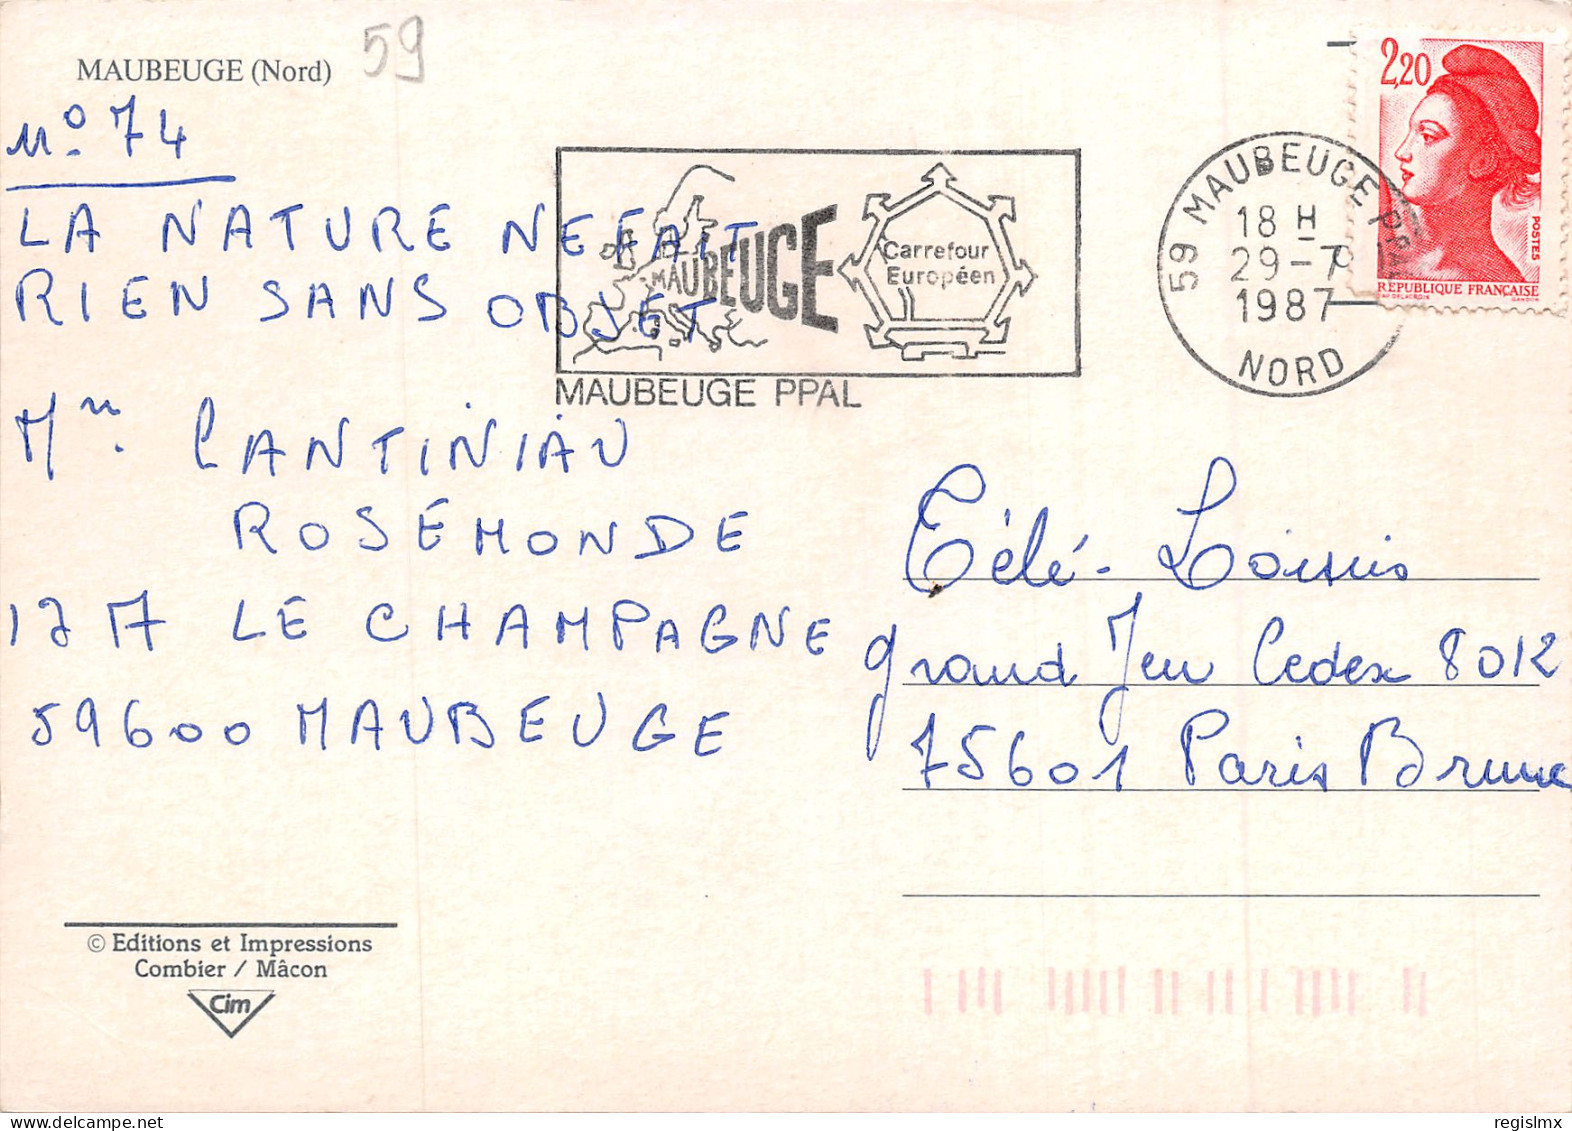 MAUBEUGE (Nord)
59
N° 74
LA NATURE NE FAIT
RIEN SANS OBJET
MAUBEUGE
Carrefour
Européen
MAUBEUGE PPAL
59 MAUBEUGE PPAL
18 H
29-7
1987
NORD
2,20
POSTES
RÉPUBLIQUE FRANÇAISE
CANTINIAU
ROSEMONDE
LE CHAMPAGNE
59600 MAUBEUGE
Télé-Loisirs
grand Jeu Cedex 8012
75601 Paris Brune
© Editions et Impressions
Combier / Mâcon
Cim
www.delcampe.net
regislmx